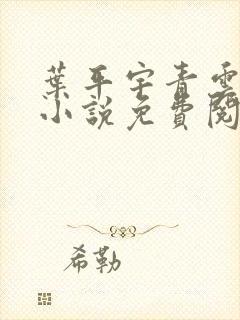 葉平宇青雲
小說免費閱
希勒